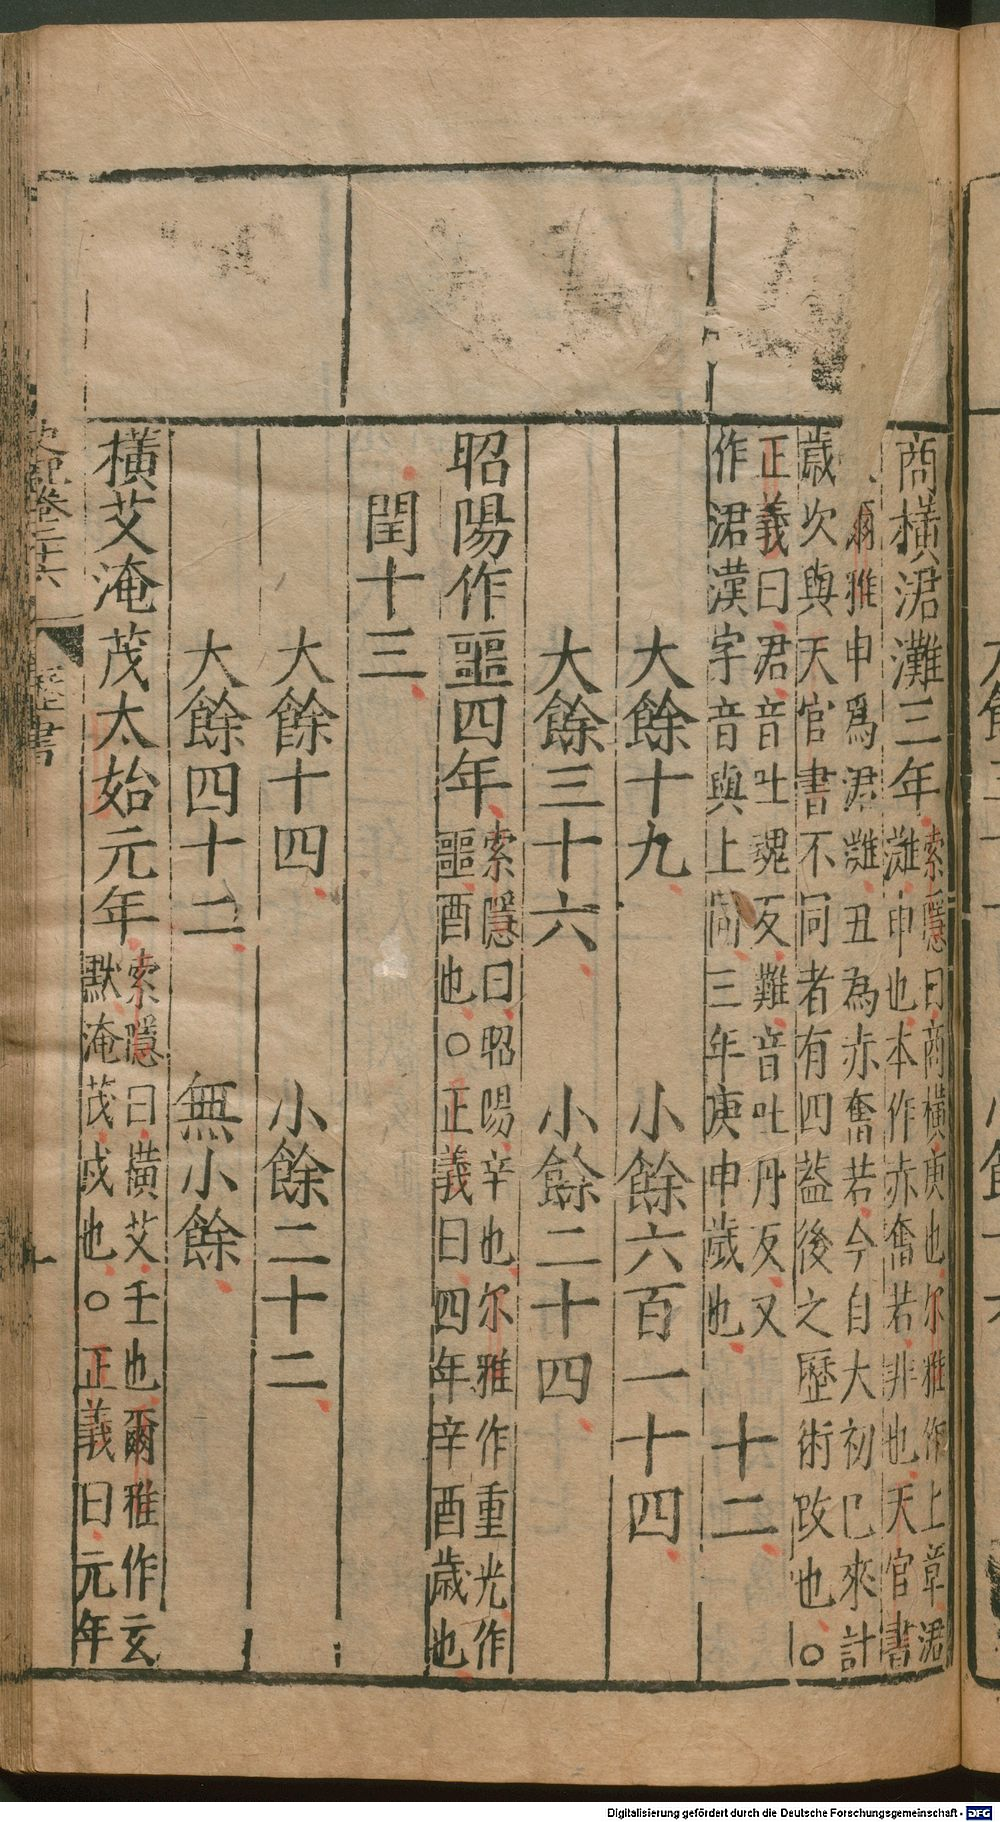 商橫涒灘三年索隱曰商橫庚也尔雅作上章涒
灘申也本作赤奮若非也天官書
爾雅申爲涒灘丑為赤奮若今自大初已來計
歲次與天官書不同者有四葢後之歷術改也○
正義曰君音吐䰟反難音吐丹反又
作涒漢字音與上同三年庚申歲也 十二
大餘十九 小餘六百一十四
大餘三十六 小餘二十四
昭陽作噩四年索隱曰昭陽辛也尔雅作重光作
噩酉也○正義曰四年辛酉歲也
閏十三
大餘十四 小餘二十二
大餘四十二 無小餘
橫艾淹茂太始元年索隱曰橫艾壬也爾雅作玄
默淹茂戌也○正義曰元年
史記卷二十六 歷書
Digitalisierung gefördert durch die Deutsche Forschungsgemeinschaft - DFG